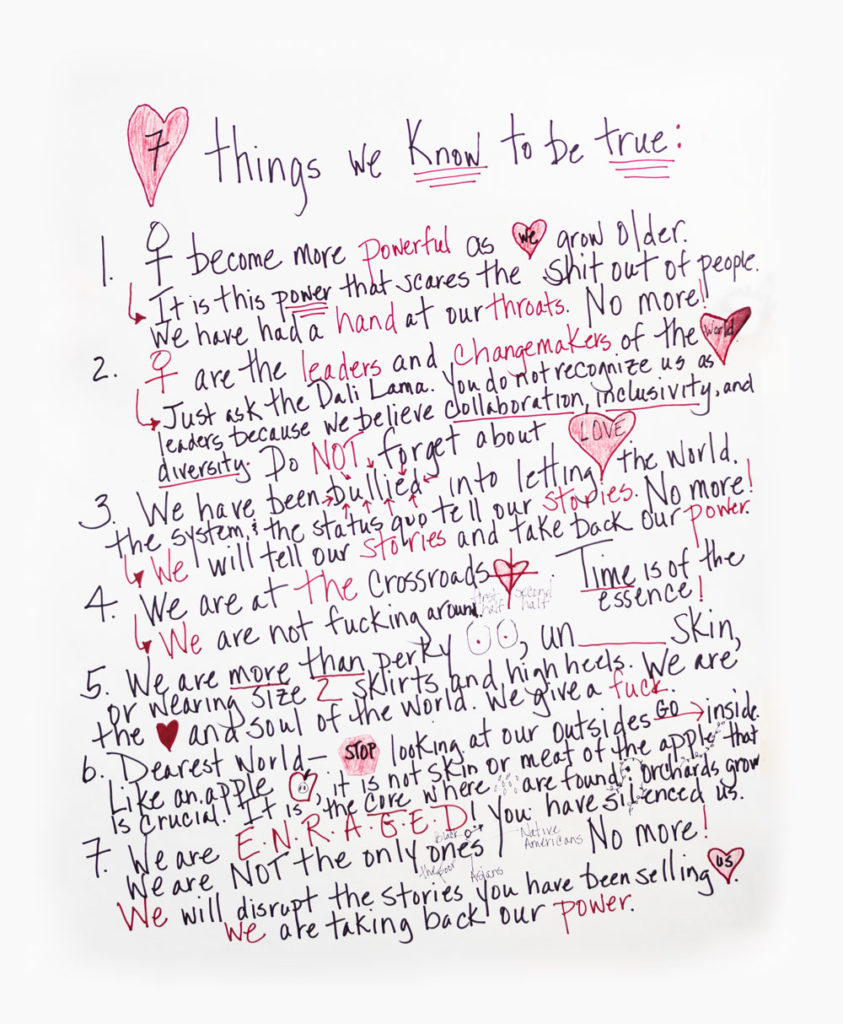 7 things we Know to be true:
1. ♀ become more powerful as we grow older.
It is this power that scares the shit out of people.
We have had a hand at our throats. No more!
2. ♀ are the leaders and changemakers of the World.
Just ask the Dali Lama. You do not recognize us as
leaders because we believe collaboration, inclusivity, and
diversity. Do NOT forget about LOVE
3. We have been bullied into letting the world.
the system, & the status quo tell our stories. No more!
We will tell our stories and take back our power.
4. We are at the Crossroads. Time is of the
essence!
first half second half
We are not fucking around
5. We are more than perky , un_____ skin,
or wearing size 2 skirts and high heels. We are
the ♥ and soul of the world. We give a fuck.
6. Dearest World— STOP looking at our outsides GO → inside.
Like an apple , it is not skin or meat of the apple that
is crucial. It is the core where are found; orchards grow
7. We are E.N.R.A.G.E.D! You have silenced us.
We are NOT the only ones No more!
Black Native Americans
the poor Asians
We will disrupt the stories you have been selling us.
We are taking back our power.